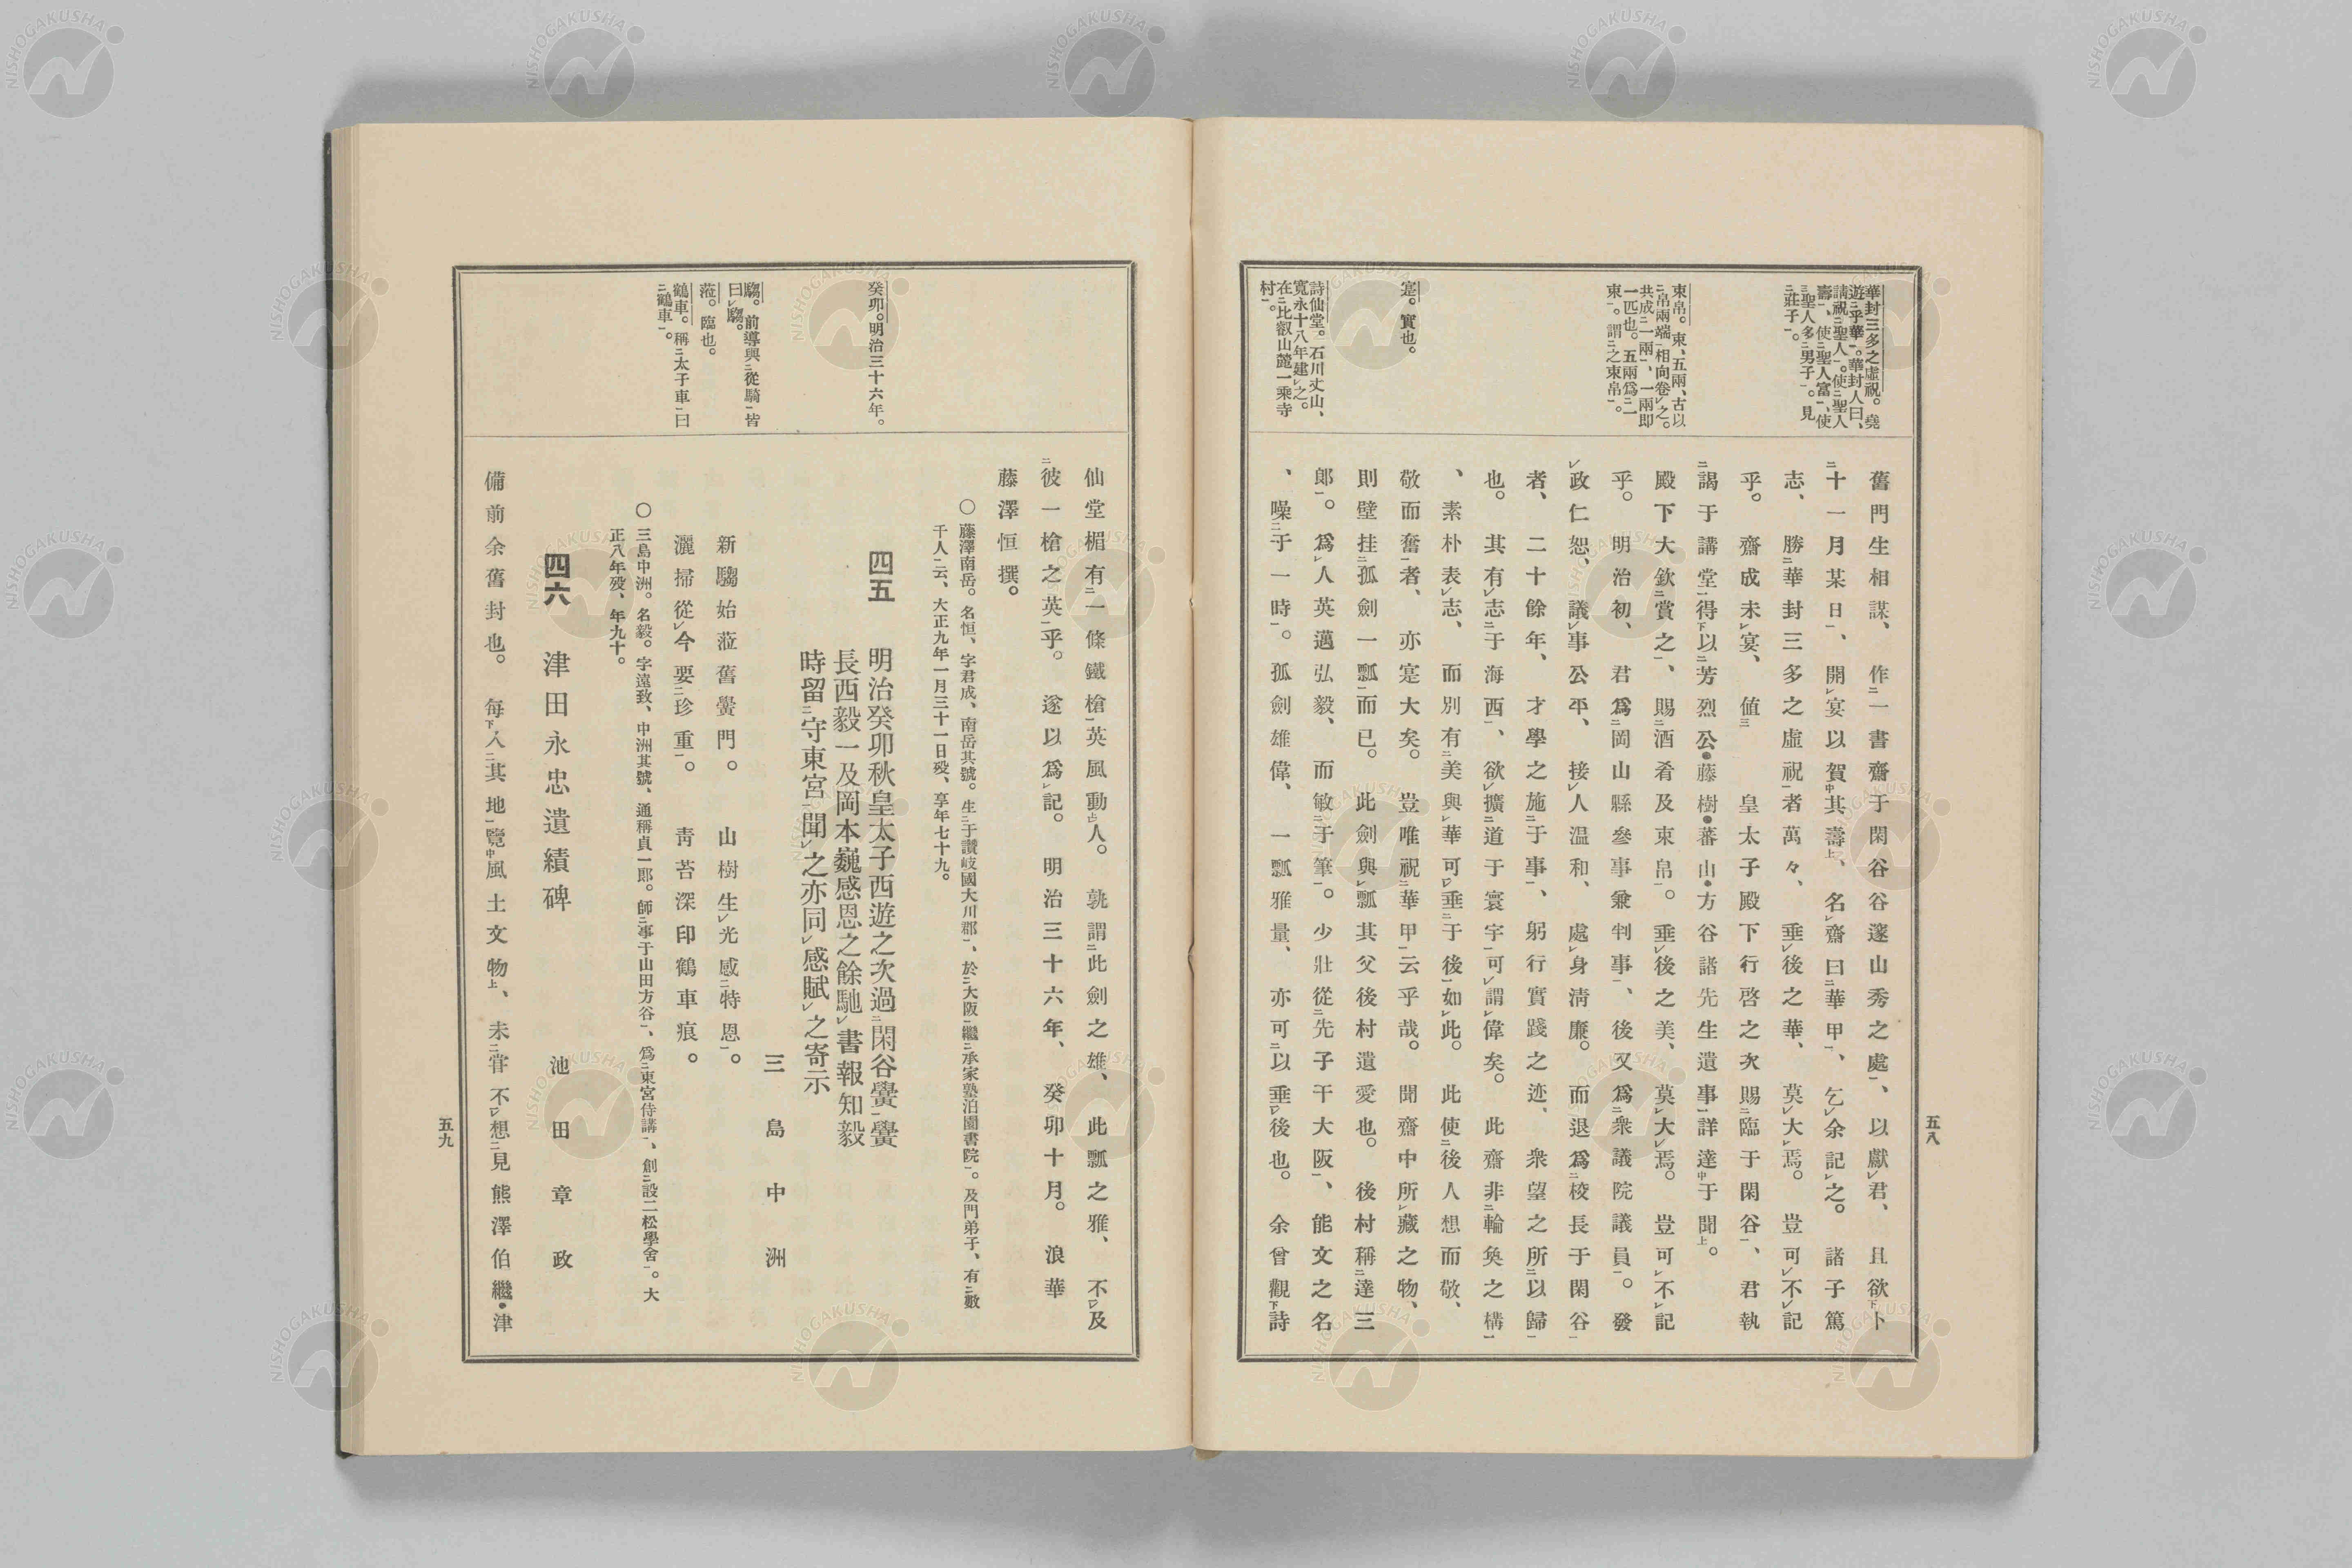 華封三多之虛祝。堯
遊二乎華一。華封人曰、
請祝二聖人一。使二聖人
壽一、使二聖人富一、使
三聖人多二男子一。見
二莊子一。
束帛。束、五兩、古以
二帛兩端一相向卷レ之。
共成二一兩一、一兩卽
一匹也。五兩爲二一
束一。謂二之束帛一。
寔。實也。
詩仙堂。石川丈山、
寬永十八年建レ之。
在二比叡山麓一乘寺
村一。
舊門生相謀、作二一書齋于閑谷谷邃山秀之處一、以獻レ君、且欲下卜
二十一月某日一、開レ宴以賀中其壽上、名レ齋曰二華甲一、乞レ余記レ之。諸子篤
志、勝二華封三多之虛祝一者萬々、垂レ後之華、莫レ大レ焉。豈可レ不レ記
乎。齋成未レ宴、値三皇太子殿下行啓之次賜二臨于閑谷一、君執
二謁于講堂一得下以二芳烈公●藤樹●蕃山●方谷諸先生遺事一詳達中于聞上。
殿下大欽二賞之一、賜二酒肴及束帛一。垂レ後之美、莫レ大レ焉。豈可レ不レ記
乎。明治初、君爲二岡山縣參事兼判事一、後又爲二衆議院議員一。發
レ政仁恕、議レ事公平、接レ人温和、處レ身淸廉。而退爲二校長于閑谷一
者、二十餘年、才學之施二于事一、躬行實踐之迹、衆望之所二以歸一
也。其有レ志二于海西一、欲レ擴二道于寰宇一可レ謂レ偉矣。此齋非二輪奐之構一
、素朴表レ志、而別有二美與レ華可レ垂二于後一如レ此。此使二後人想而敬、
敬而奮一者、亦寔大矣。豈唯祝二華甲一云乎哉。聞齋中所レ藏之物、
則壁挂二孤劍一瓢一而已。此劍與レ瓢其父後村遺愛也。後村稱二達三
郞一。爲レ人英邁弘毅、而敏二于筆一。少壯從二先子于大阪一、能文之名
、噪二于一時一。孤劍雄偉、一瓢雅量、亦可二以垂一レ後也。余曾觀下詩
五八
癸卯。明治三十六年。
騶。前導與二從騎一皆
曰レ騶。
蒞。臨也。
鶴車。稱二太子車一曰
二鶴車一。
仙堂楣有二一條鐵槍一英風動上レ人。孰謂二此劍之雄、此瓢之雅、不一レ及
二彼一槍之英一乎。遂以爲レ記。明治三十六年、癸卯十月。浪華
藤澤恒撰。
○藤澤南岳。名恒、字君成、南岳其號。生二于讚岐國大川郡一、於二大阪一繼二承家塾泊園書院一。及門弟子、有二數
千人一云、大正九年一月三十一日歿、享年七十九。
四五 明治癸卯秋皇太子西遊之次過二閑谷黌一黌
長西毅一及岡本巍感恩之餘馳レ書報知毅
時留二守東宮一聞レ之亦同レ感賦レ之寄示
三島中洲
新騶始蒞舊黌門。山樹生レ光感二特恩一。
灑掃從レ今要二珍重一。靑苔深印鶴車痕。
○三島中洲。名毅。字遠致、中洲其號、通稱貞一郞。師二事于山田方谷一、爲二東宮侍講一、創二設二松學舍一。大
正八年歿、年九十。
四六 津田永忠遺績碑 池田章政
備前余舊封也。每下入二其地一覽中風土文物上、未二甞不一レ想二見熊澤伯繼●津
五九